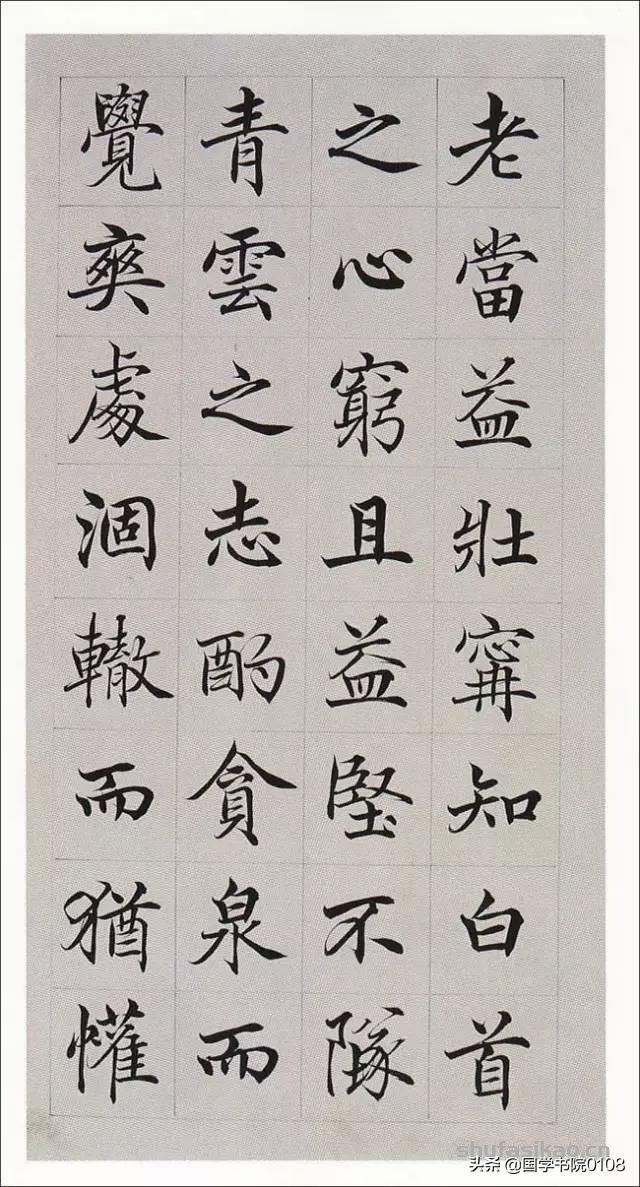 老當益壯寗知白首
之心窮且益堅不隊
青雲之志酌貪泉而
覺爽處涸轍而猶懽
shufasikao.cn
头条@国学书院0108